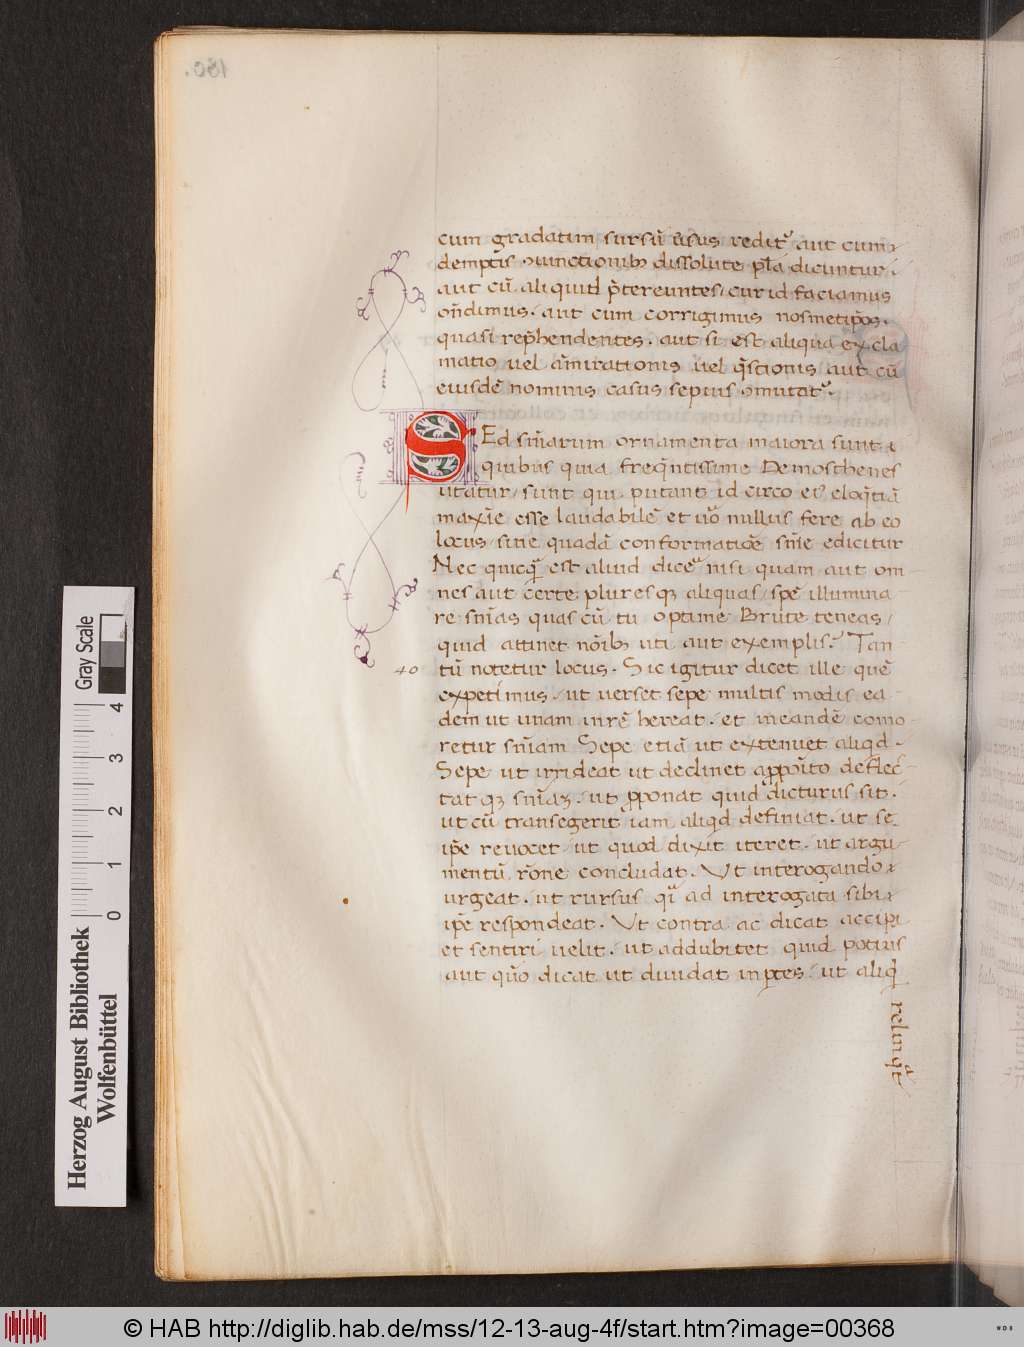 130.
cum gradatim sursū u̾sus reditᷣ aut cum
demptis ↄiunctionibꝫ dissolute pl̄a dicuntur.
aut cū aliquid p̄tereuntes, cur id faciamus
on̄dimus. aut cum corrigimus nosmetip̄os.
quasi rep̄hendentes. aut si est aliqua excla
matio uel am̄irationis uel q̄stionis aut cū
eiusdē nominis casus sepius ↄmutatᷣ.
SEd sn̄iarum ornamenta maiora sunt
quibus quia freq̄ntissime Demosthenes
utatur, sunt qui putant id circo ei᾽ eloq̄tiā
maxīe esse laudabilē et uo̾ nullus fere ab eo
locus, sine quadā conformatiōe sn̄ie edicitur
Nec quicq̄ est aliud dice̾ nisi quam aut om
nes aut certe pluresqꝫ aliquas, spē illumina
re sn̄ias quas cū tu optime Brute teneas,
quid attinet nōibꝫ uti aut exemplis? Tan
40 tū notetur locus. Sic igitur dicet ille quē
expetimus. ut uerset sepe multis modis ea
dem ut unam inrē hereat. et ineandē como
retur sn̄iam Sepe etiā ut extenuet aliqd.
Sepe ut irrideat ut declinet apropōito deflec
tat qꝫ sn̄iaꝫ. ut pponat quid dicturus sit.
ut cū transegerit iam aliqd definiat. ut se
ip̄e reuocet ut quod dixit iteret. ut argu
mentū rōne concludat. Ut interogando
urgeat. ut rursus q̄i ad interogata sibi
ip̄e respondeat. Ut contra ac dicat accipi
et sentiri uelit. ut addubitet quid potius
aut quō dicat ut diuidat in ptes. ut aliqd
relinq̄t
Gray Scale
4
3
2
1
0
Herzog August Bibliothek
Wolfenbüttel
© HAB http://diglib.hab.de/mss/12-13-aug-4f/start.htm?image=00368